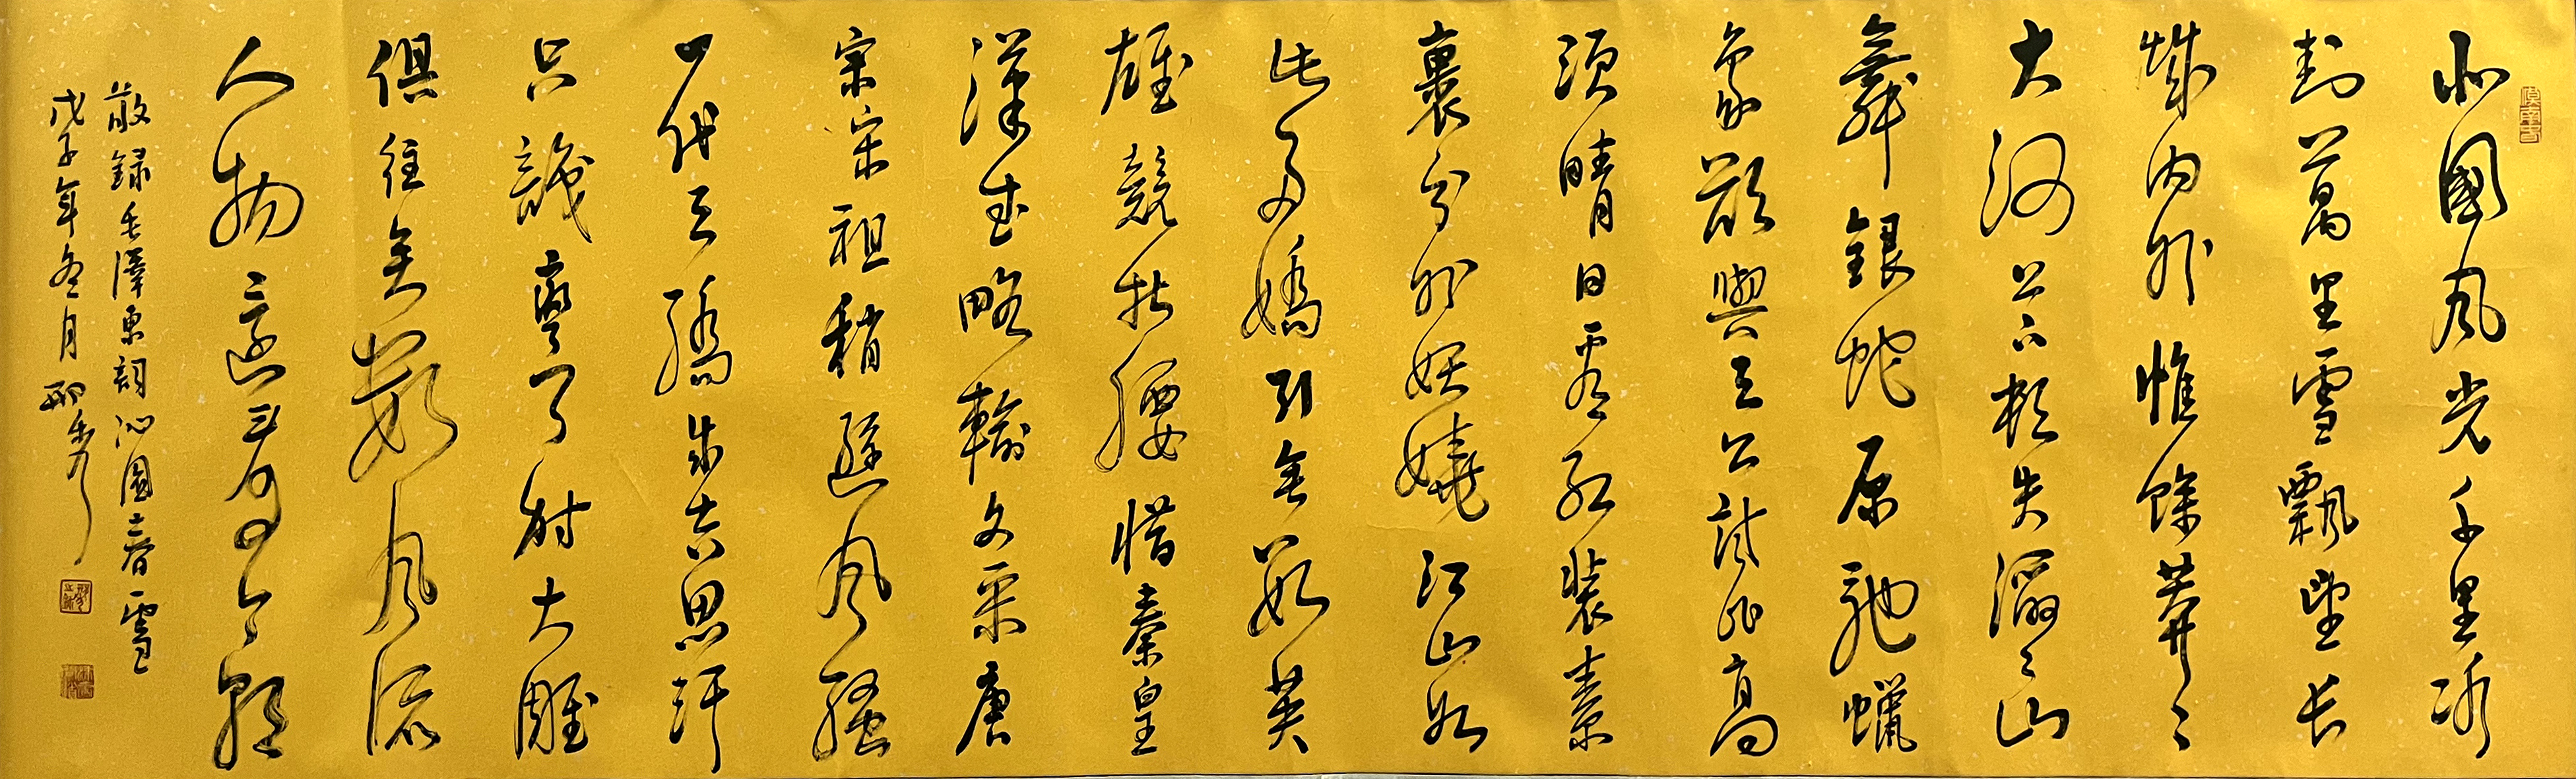 北國風光千里冰
封萬里雪飄望长
城内外惟餘莽々
大河上下頓失滔々山
舞銀蛇原馳蠟
象欲與天公試比高
須晴日看红裝素
裹分外妖嬈江山如
此多嬌引無數英
雄競折腰惜秦皇
漢武略輸文采唐
宗宋祖稍遜風騷
一代天驕成吉思汗
只識彎弓射大雕
俱往矣數風流
人物還看今朝
敬録毛澤東詞沁園春雪
戊子年冬月